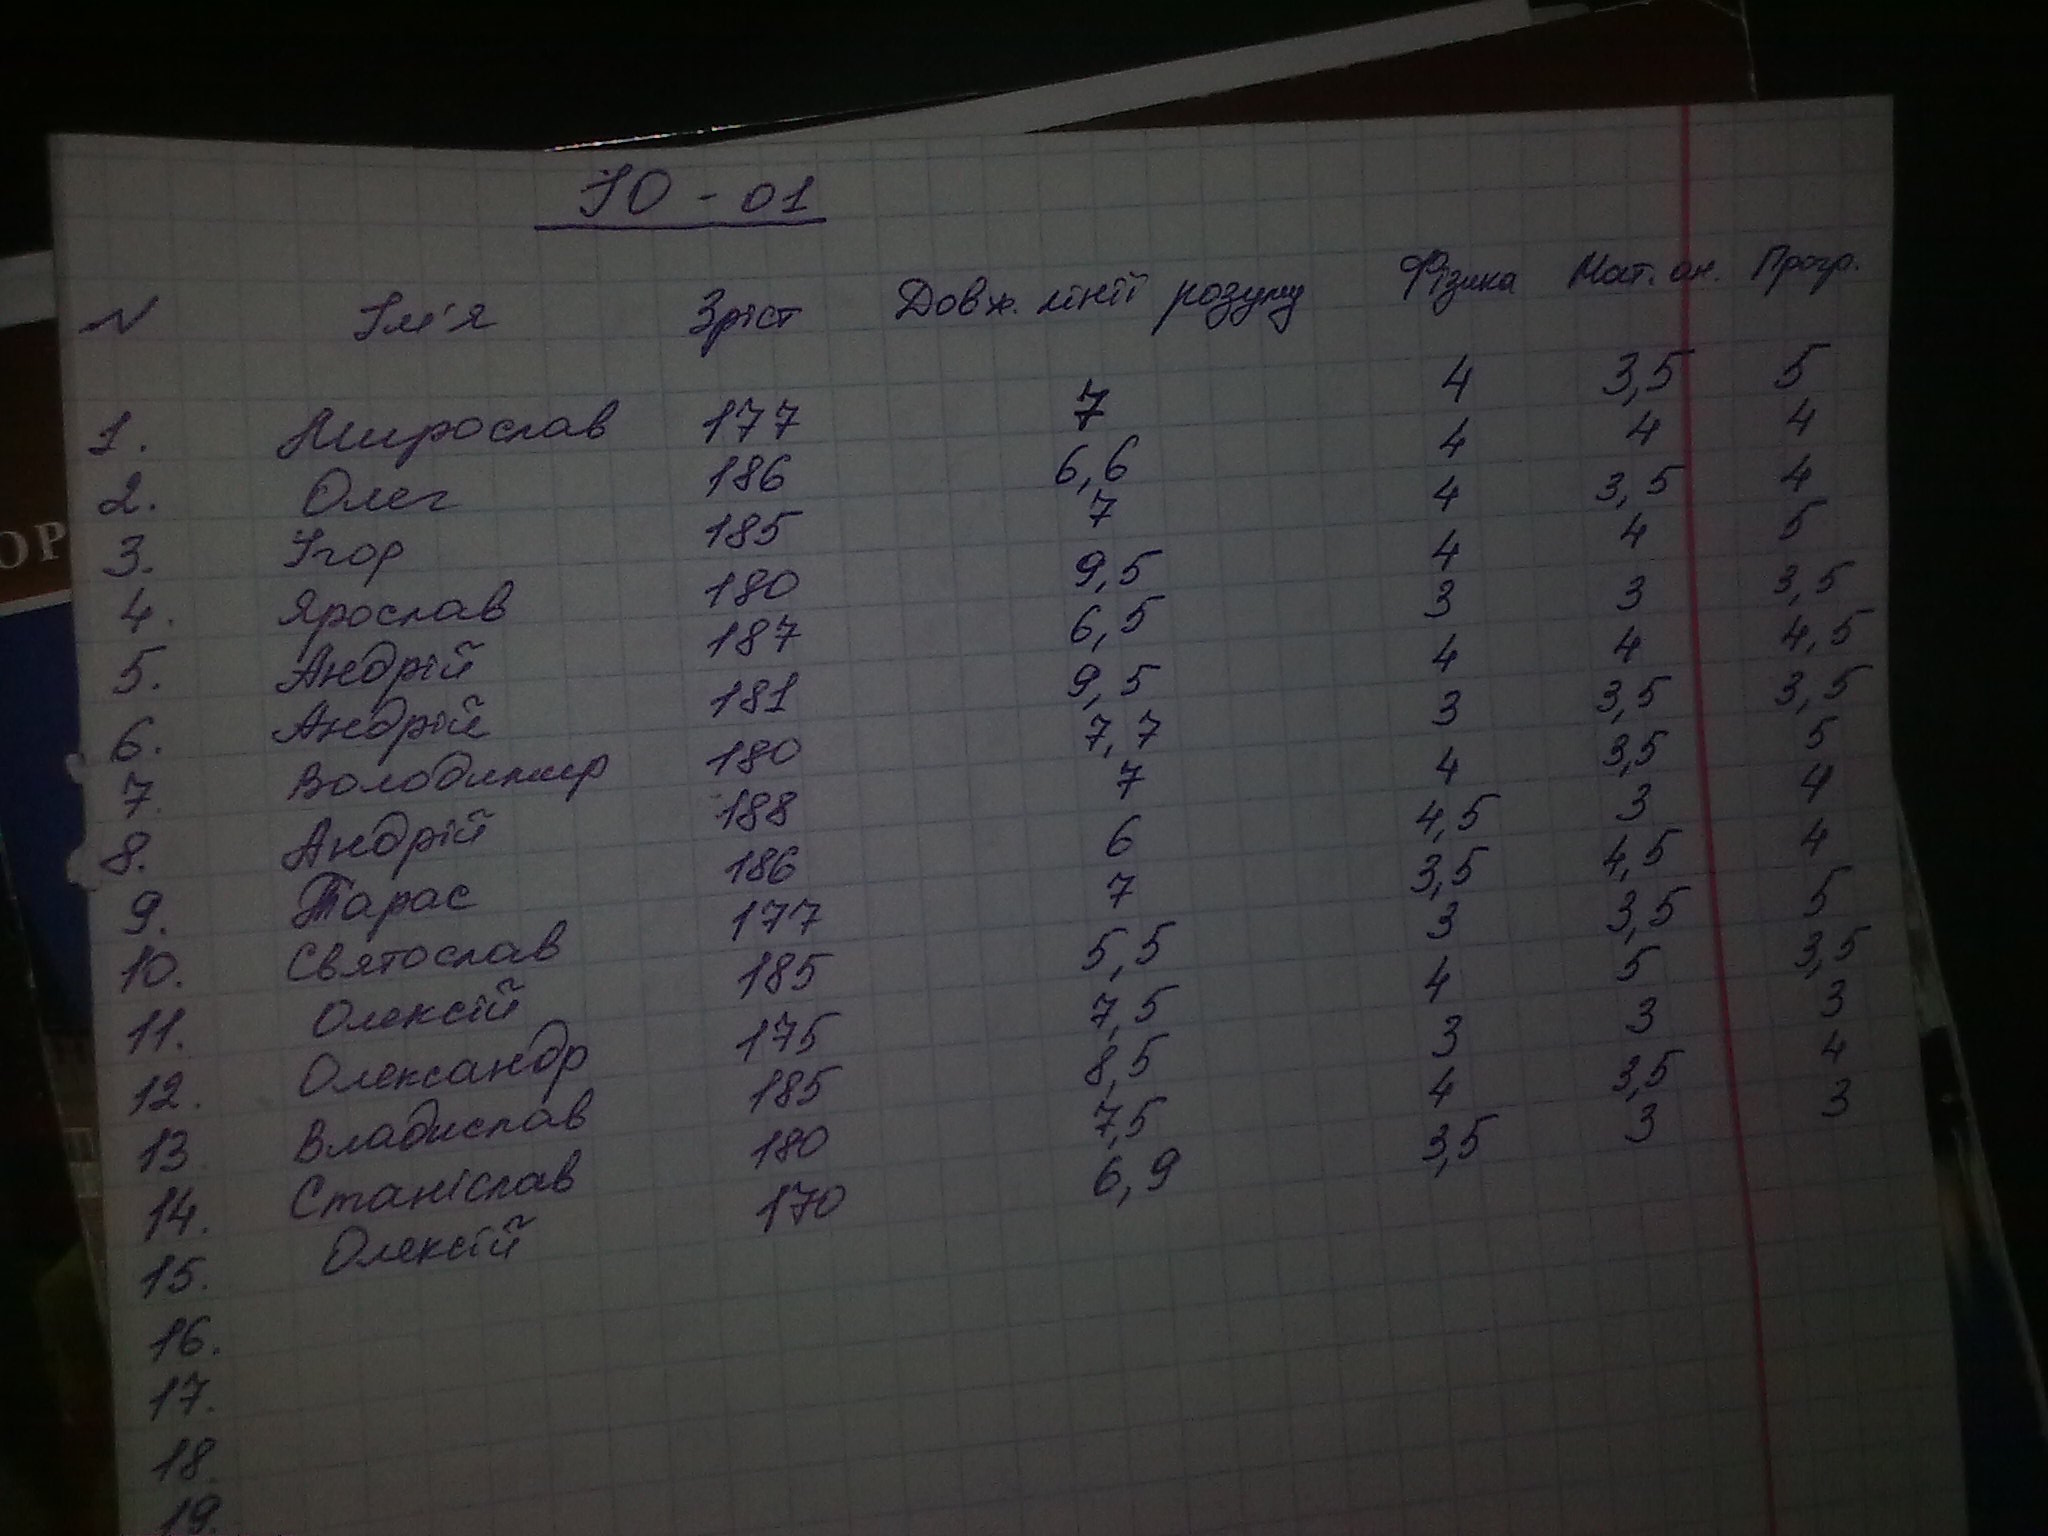 ІО - 01
N Ім'я Зріст Довж. лінії розуму Фізика Мат. ан. Прогр.
1. Мирослав 177 7 4 3,5 5
2. Олег 186 6,6 4 4 4
3. Ігор 185 7 4 3,5 4
4. Ярослав 180 9,5 4 4 5
5. Андрій 187 6,5 3 3 3,5
6. Андрій 181 9,5 4 4 4,5
7. Володимир 180 7,7 3 3,5 3,5
8. Андрій 188 7 4 3,5 5
9. Тарас 186 6 4,5 3 4
10. Святослав 177 7 3,5 4,5 4
11. Олексій 185 5,5 3 3,5 5
12. Олександр 175 7,5 4 5 3,5
13. Владислав 185 8,5 3 3 3
14. Станіслав 180 7,5 4 3,5 4
15. Олексій 170 6,9 3,5 3 3
16.
17.
18.
19.
ОР